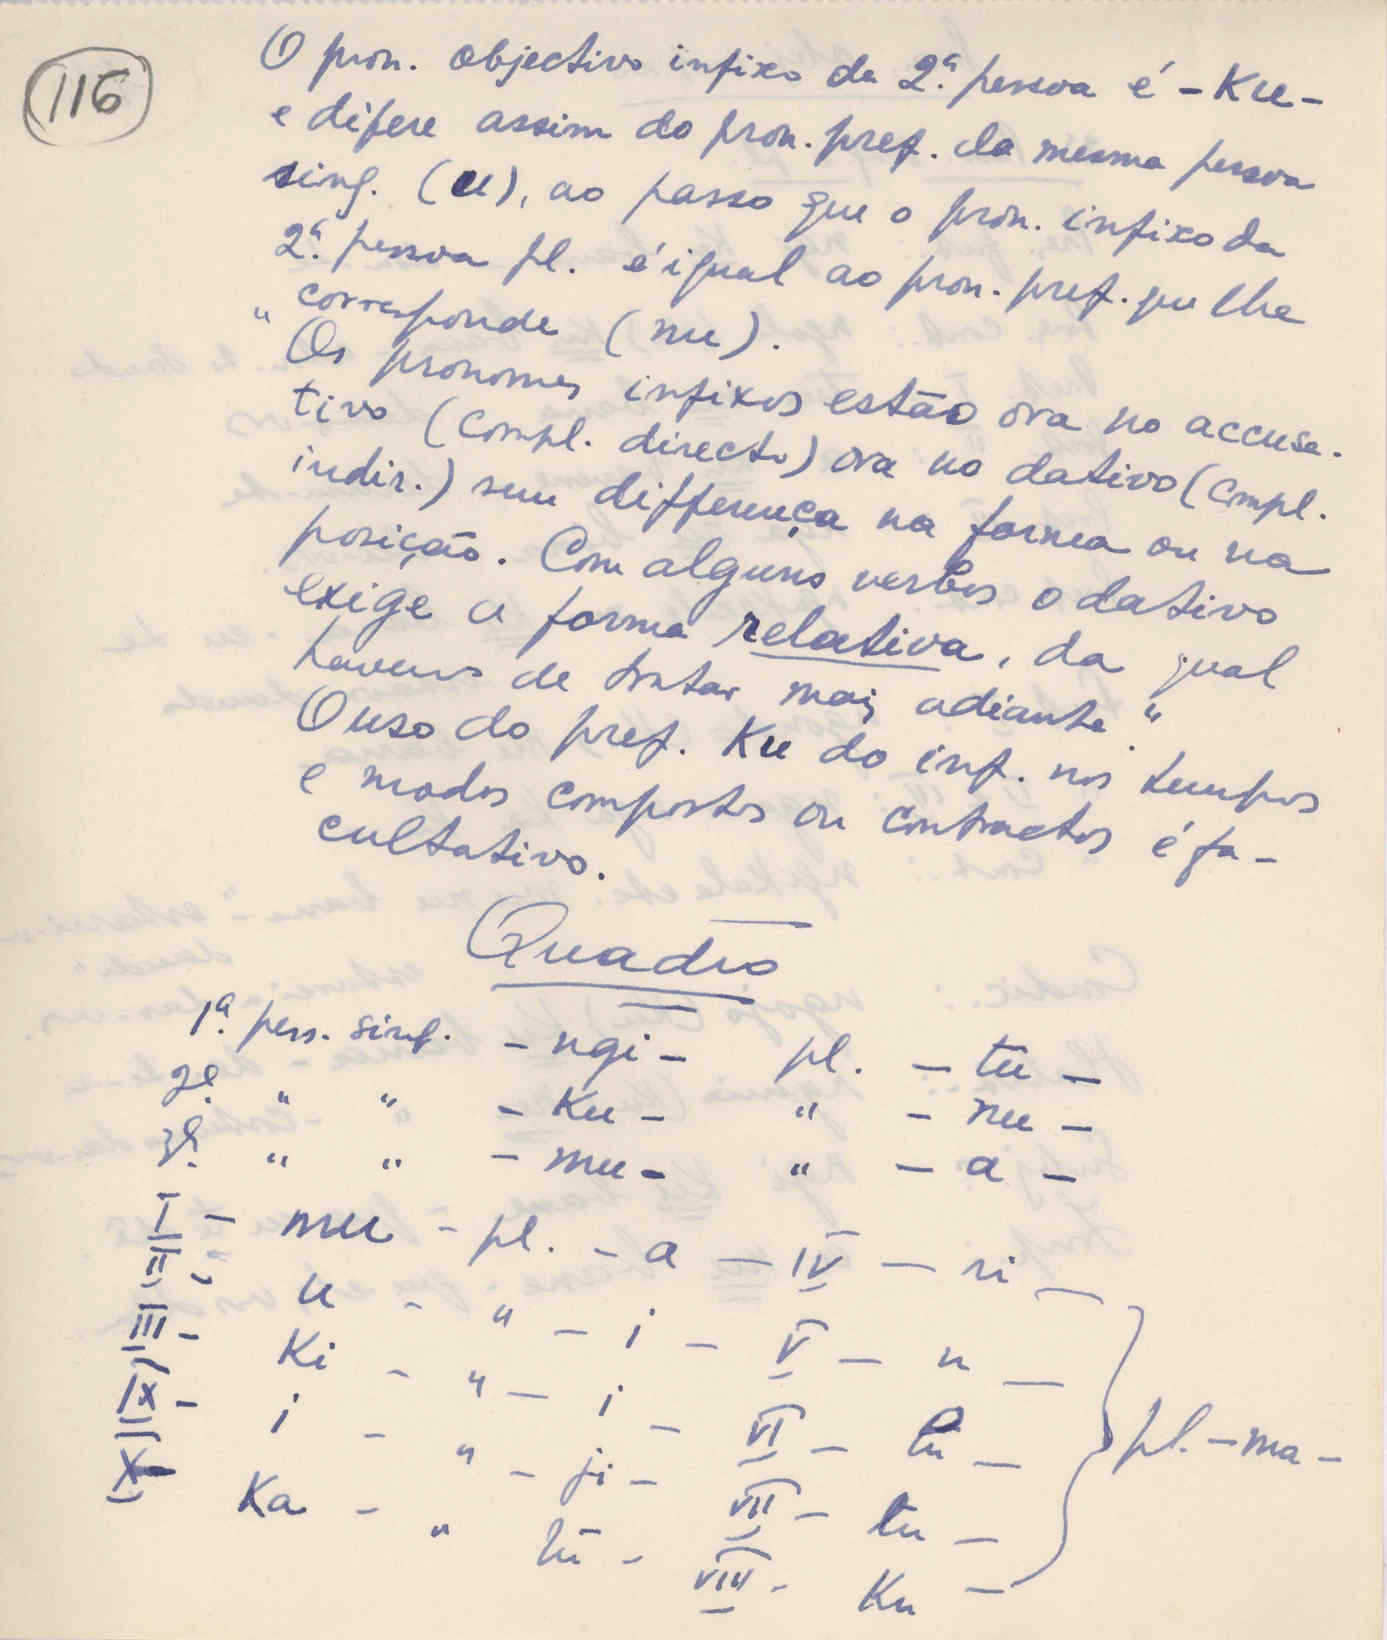 116
O pron. objectivo infixo da 2.ª pessoa é - Ku -
e difere assim do pron. pref. da mesma pessoa
sing. (u), ao passo que o pron. infixo da
2.ª pessoa pl. é igual ao pron. pref. que lhe
corresponde (nu).
" Os pronomes infixos estão ora no accusa-
tivo (compl. directo) ora no dativo (compl.
indir.) sem differença na forma ou na
posição. Com alguns verbos o dativo
exige a forma relativa, da qual
havemos de tratar mais adiante."
O uso do pref. Ku do inf. nos tempos
e modos compostos ou contractos é fa-
cultativo.
Quadro
1.ª pess. sing. - ngi - pl. - tu -
2.ª " " - Ku - " - nu -
3.ª " " - mu - " - a -
I - mu - pl. - a - IV - ri -
II - u - " - i - V - u -
III - Ki - " - i - VI - lu -
IX - i - " - ji - VII - tu -
X - Ka - " tu - VIII - Ku -
pl. - ma -